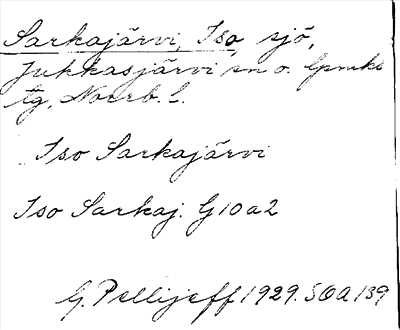 Sarkajärvi, Iso, sjö,
Jukkasjärvi sn o. lpmks
tg, Norrb. l.
Iso Sarkajärvi
Iso Sarkaj. G10a2
G. Pellijeff 1929. SOA 139